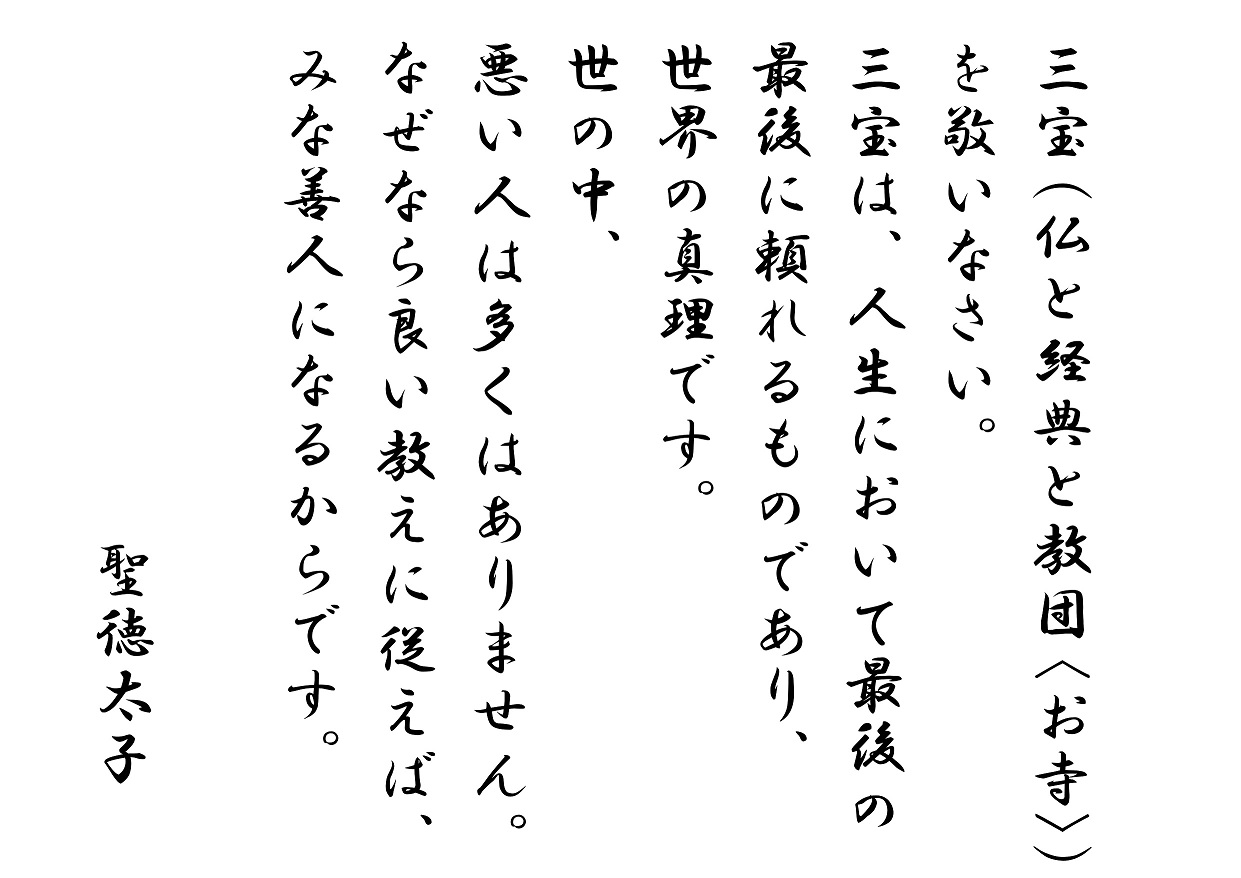 三宝（仏と経典と教団〈お寺〉）
を敬いなさい。
三宝は、人生において最後の
最後に頼れるものであり、
世界の真理です。
世の中、
悪い人は多くはありません。
なぜなら良い教えに従えば、
みな善人になるからです。
聖徳太子